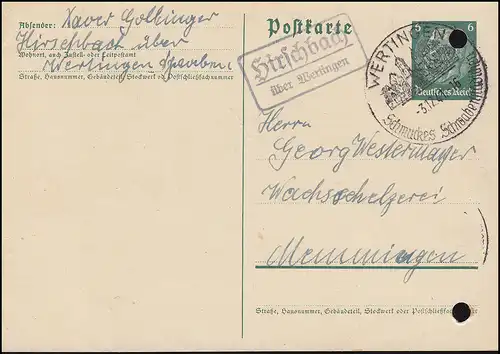 Absender: Xaver Gollinger
Hirschbach über
Wohnort, auch Zustell- oder Leitpostamt
Wertingen Schwaben
Straße, Hausnummer, Gebäudeteil, Stockwerk od. Postschließfachnummer
Postkarte
Hirschbach
über Wertingen
WERTINGEN
Schmuckes Schwabenstädtchen
6 6
Deutsches Reich
Herrn
Georg Westermayer
Memmingen
Straße, Hausnummer, Gebäudeteil, Stockwerk oder Postschließfachnummer